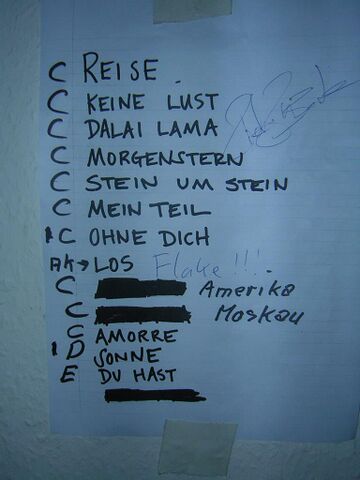 C REISE.
C KEINE LUST
C DALAI LAMA
C MORGENSTERN
C STEIN UM STEIN
C MEIN TEIL
C OHNE DICH
AK→LOS Flake!!!
C Amerika
C Moskau
C AMORRE
D SONNE
E DU HAST